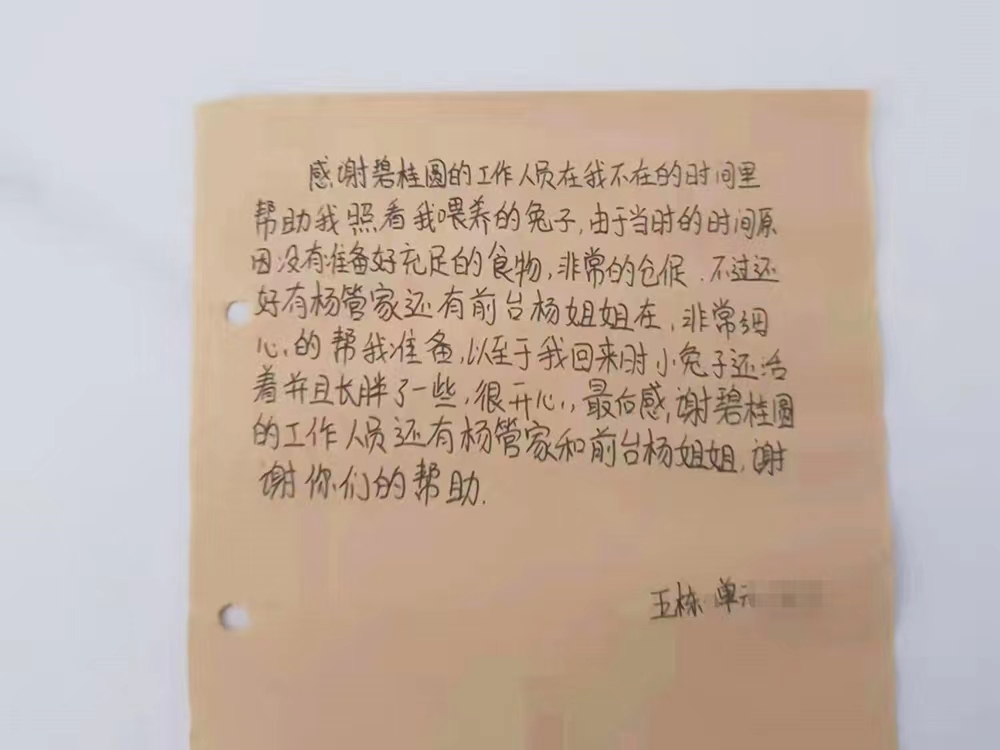 感谢碧桂圆的工作人员在我不在的时间里
帮助我照看我喂养的兔子,由于当时的时间原
因没有准备好充足的食物,非常的仓促.不过还
好有杨管家还有前台杨姐姐在,非常细
心,的帮我准备,以至于我回来时小兔子还活
着并且长胖了一些,很开心,,最后感谢碧桂圆
的工作人员还有杨管家和前台杨姐姐,谢
谢你们的帮助.
王栋 单元